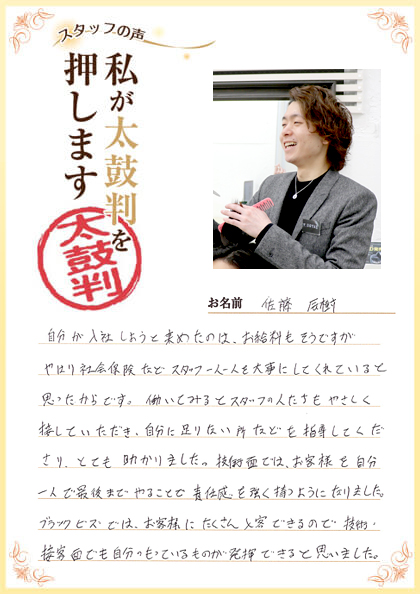 スタッフの声
私が太鼓判を
押します
太鼓判
お名前 佐藤
自分が入社しようと決めたのは、お給料もそうですが
やはり社会保険などスタッフ一人一人を大事にしてくれていると
思ったからです。働いてみるとスタッフの人たちもやさしく
接していただき、自分に足りない所などを指導してくだ
さり、とても助かりました。技術面では、お客様を自分
一人で最後までやることで責任感を強く持つようになりました。
ブラックビズでは、お客様にたくさん接客できるので技術・
接客面でも自分のもっているものが発揮できると思いました。